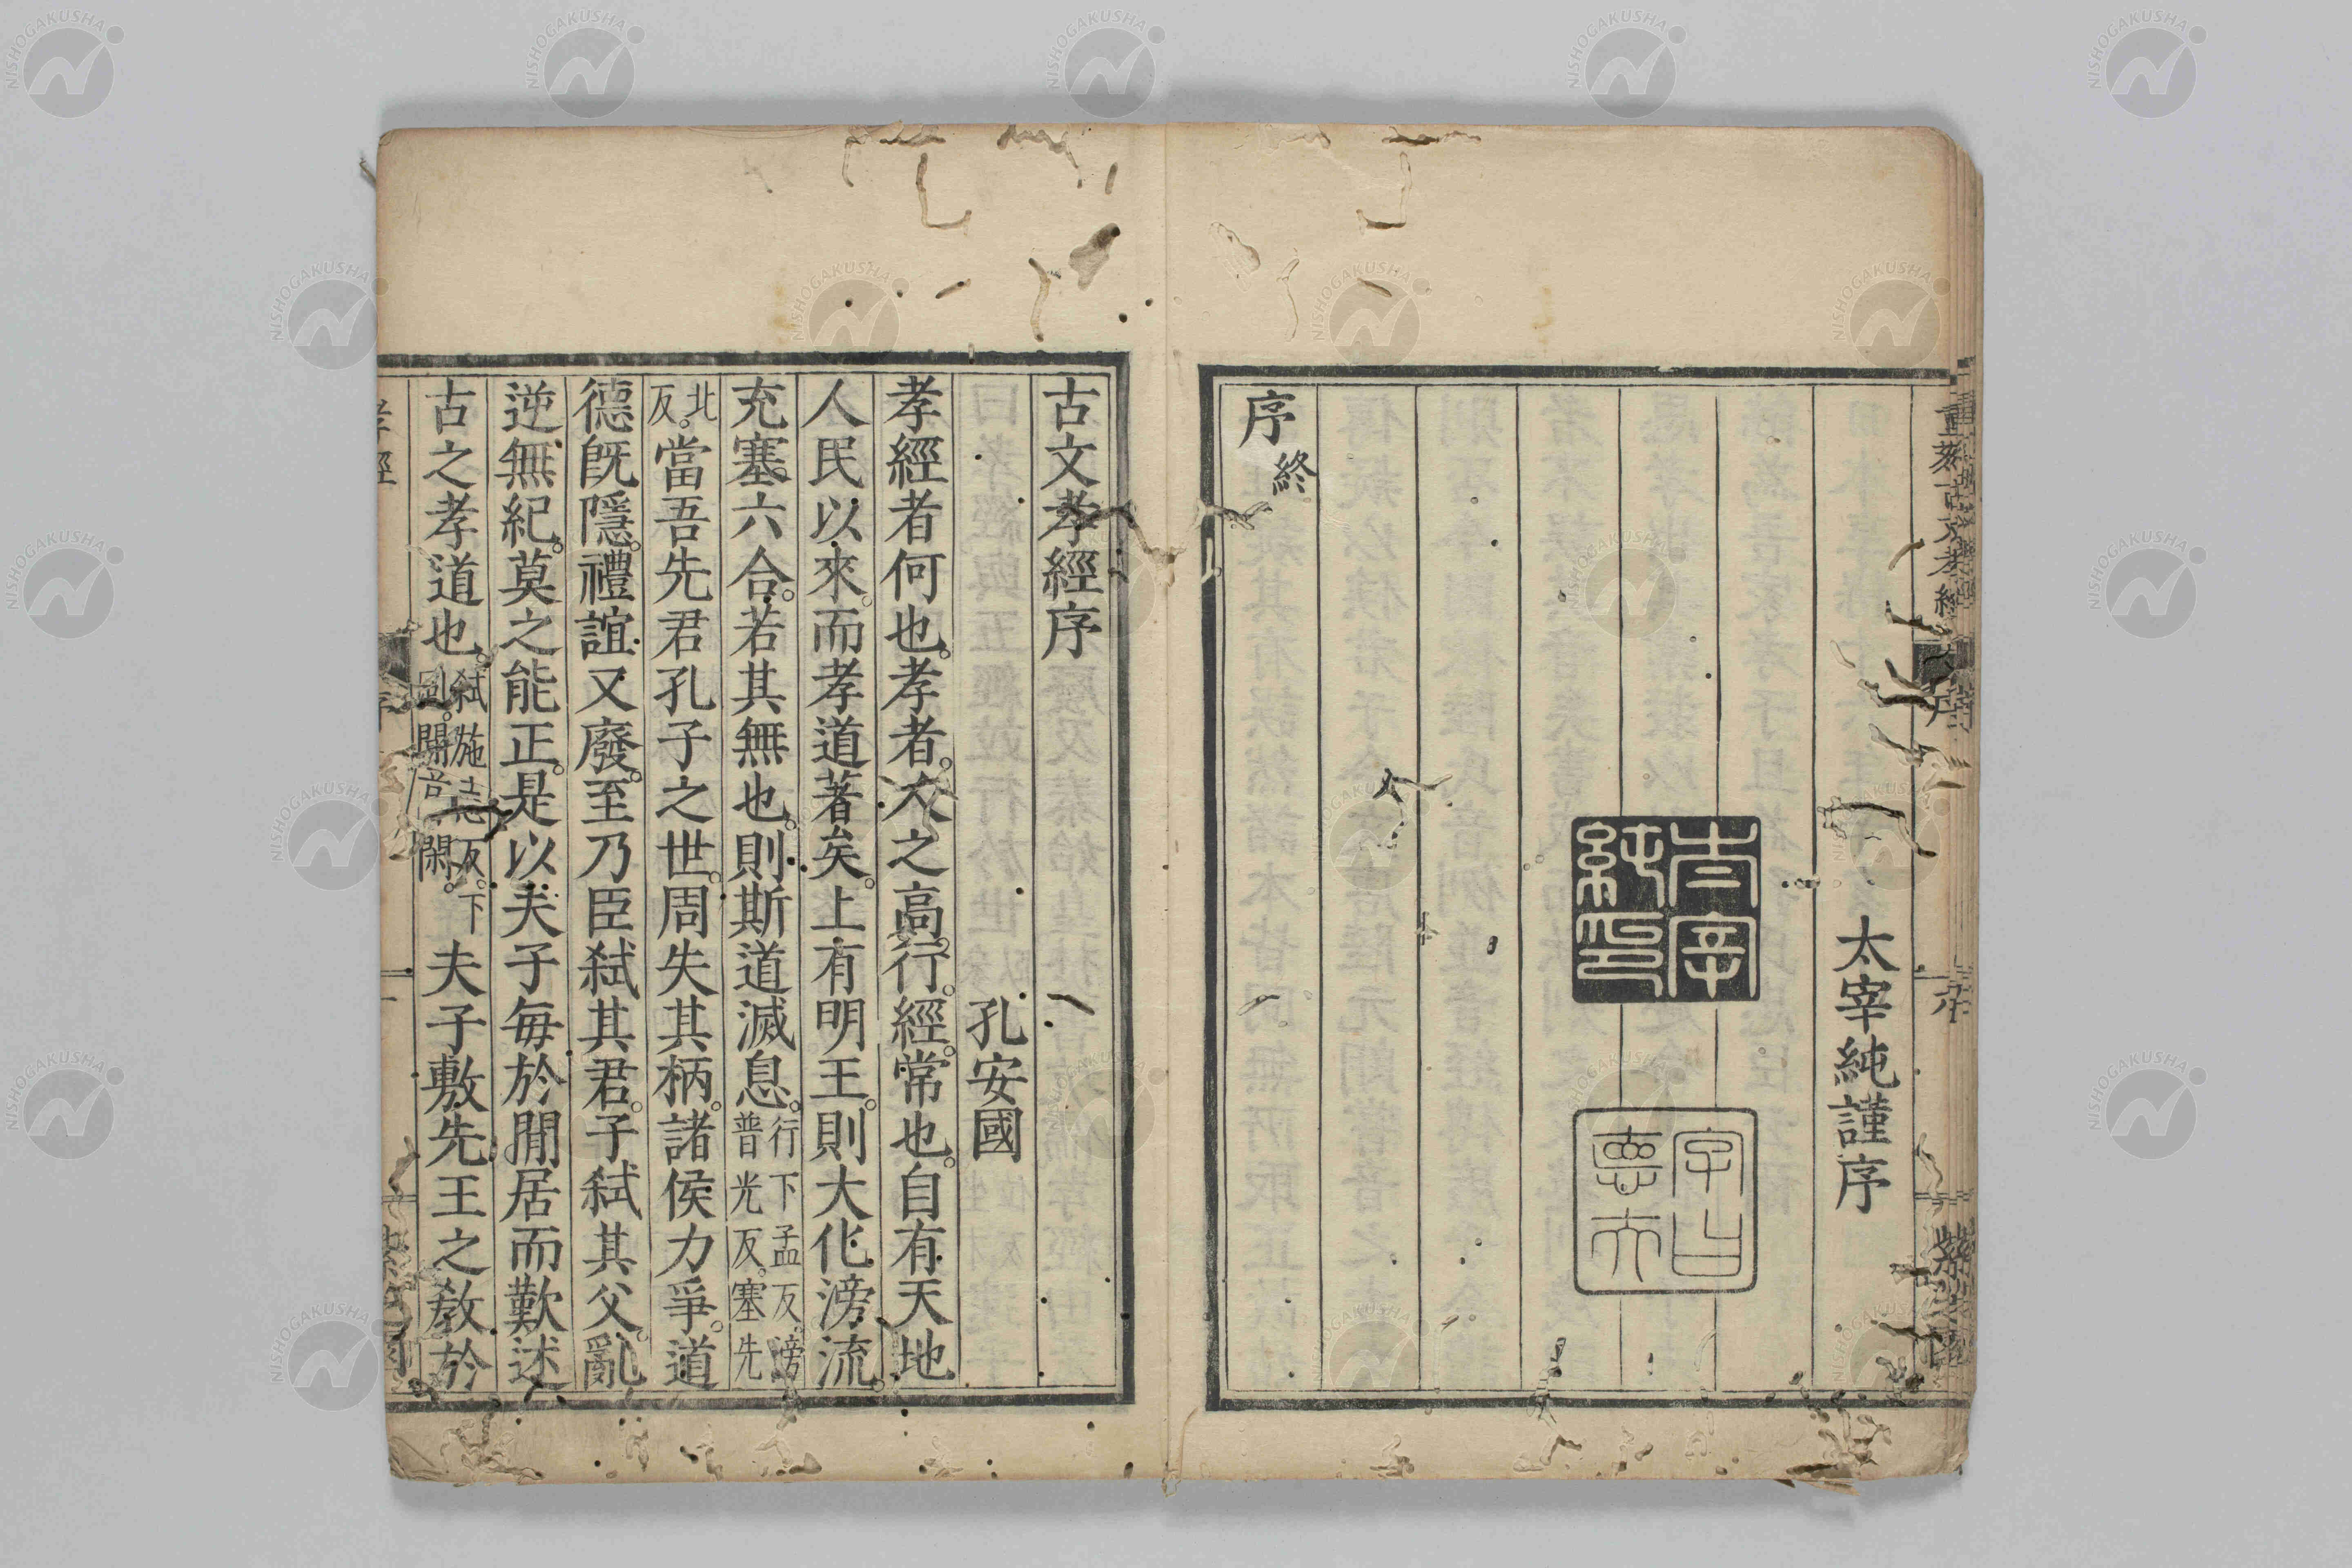 重刻古文孝經
序
六
紫芝園
太宰純謹序
太宰
純印
字曰
德夫
序終
古文孝經序
孔安國
孝經者何也。孝者。人之高行。經。常也。自有天地
人民以來。而孝道著矣。上有明王。則大化滂流。
充塞六合。若其無也。則斯道滅息。行下孟反。滂普光反。塞先
北反。當吾先君孔子之世。周失其柄。諸侯力爭。道
德既隱。禮誼又廢。至乃臣弒其君。子弒其父。亂
逆無紀。莫之能正。是以夫子每於閒居而歎述
古之孝道也。弒施志反。下同。閒音閑。夫子敷先王之敎於
孝經
NISHOGAKUSHA